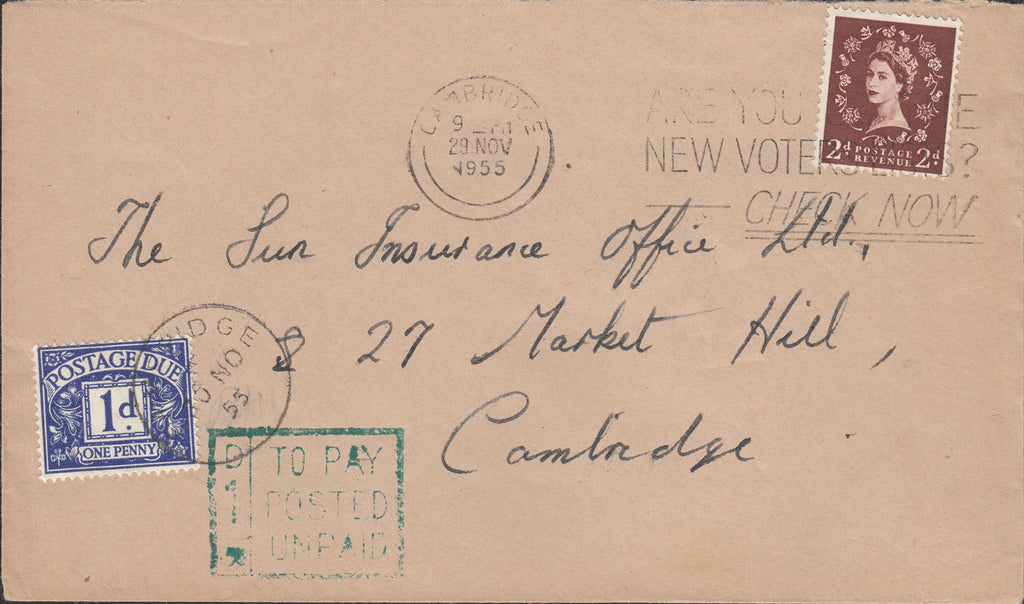 CAMBRIDGE
9 PM
29 NOV
1955
ARE YOU
NEW VOTERS ?
CHECK NOW
2d POSTAGE REVENUE 2d
The Sun Insurance Office Ltd.,
& 27 Market Hill,
Cambridge
POSTAGE DUE
1d.
ONE PENNY
NO
55
D
1
TO PAY
POSTED
UNPAID